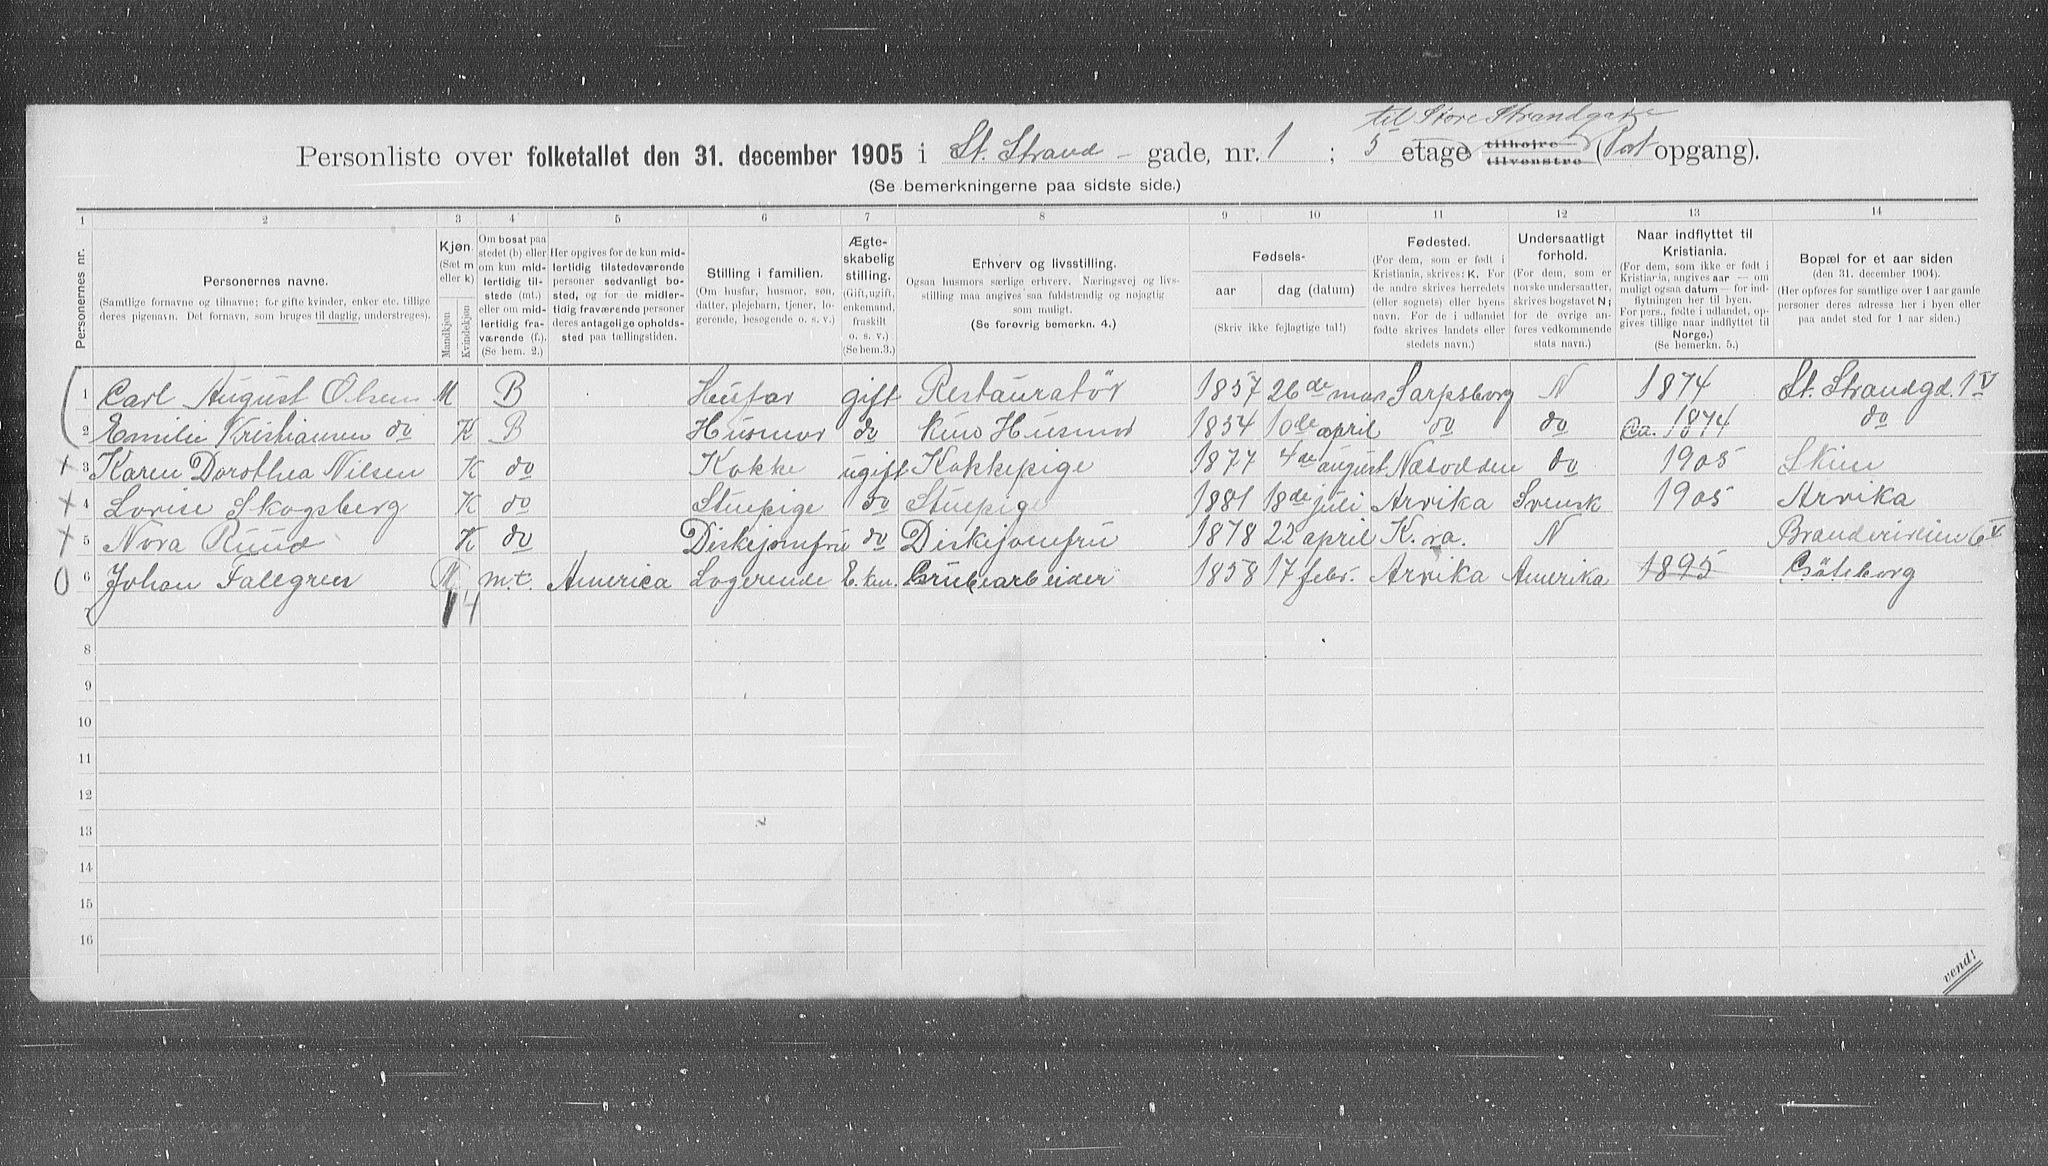 til Store Strandgate
Personliste over folketallet den 31. december 1905 i St. Strand - gade, nr. 1 ; 5 etage tilhøjre tilvenstre (Port opgang).
(Se bemerkningerne paa sidste side.)
1 2 3 4 5 6 7 8 9 10 11 12 13 14
Personernes nr.
Personernes navne.
(Samtlige fornavne og tilnavne; for gifte kvinder, enker etc. tillige
deres pigenavn. Det fornavn, som bruges til daglig, understreges).
Kjøn.
(Sæt m
eller k)
Mandkjøn
Kvindekjøn
Om bosat paa
stedet (b) eller
om kun mid-
lertidig til-
stede (mt.)
eller om mid-
lertidig fra-
værende (f.).
(Se bem. 2.)
Her opgives for de kun mid-
lertidig tilstedeværende
personer sedvanligt bo-
sted, og for de midler-
tidig fraværende personer
deres antagelige opholds-
sted paa tællingstiden.
Stilling i familien.
(Om husfar, husmor, søn,
datter, plejebarn, tjener, lo-
gerende, besøgende o. s. v.)
Ægte-
skabelig
stilling.
(Gift, ugift,
enkemand,
fraskilt
o. s. v.)
(Se bem. 3.)
Erhverv og livsstilling.
Ogsaa husmors særlige erhverv. Næringsvej og livs-
stilling maa angives saa fuldstændig og nøjagtig
som muligt.
(Se forøvrig bemerkn. 4.)
Fødsels-
aar dag (datum)
(Skriv ikke fejlagtige tal!)
Fødested.
(For dem, som er født i
Kristiania, skrives: K. For
de andre skrives herredets
(eller sognets) eller byens
navn. For de i udlandet
fødte skrives landets eller
stedets navn.)
Undersaatligt
forhold.
(For dem, som er
norske undersaatter,
skrives bogstavet N;
for de øvrige an-
føres vedkommende
stats navn.)
Naar indflyttet til
Kristiania.
(For dem, som ikke er født i
Kristiania, angives aar — om
muligt ogsaa datum — for ind-
flytningen her til byen.
For pers., fødte i udlandet, op-
gives tillige naar indflyttet til
Norge.)
(Se bemerkn. 5.)
Bopæl for et aar siden
(den 31. december 1904).
(Her opføres for samtlige over 1 aar gamle
personer deres adressa her i byen eller
paa andet sted for 1 aar siden.)
1 Carl August Olsen M B Husfar gift Restauratør 1857 26de mars Sarpsborg N 1874 St. Strandgd. 1 V
2 Emilie Kristiansen do K B Husmor do kuns Husmor 1854 10de april do do ca. 1874 do
3 Karen Dorothea Nilsen K do Kokke ugift Kokkepige 1877 4de august Næsodden do 1905 Skien
4 Lovise Skogsberg K do Stuepige do Stuepige 1881 18de juli Arvika Svensk 1905 Arvika
5 Nora Ruud K do Diskejomfru do Diskejomfru 1878 22 april K.ra. N 6 V
6 Johan Fallgren M m.t. America Logerende E. km. Grubearbeider 1858 17 febr. Arvika Amerika 1895 Göteborg
1 4
7
8
9
10
11
12
13
14
15
16
vend!